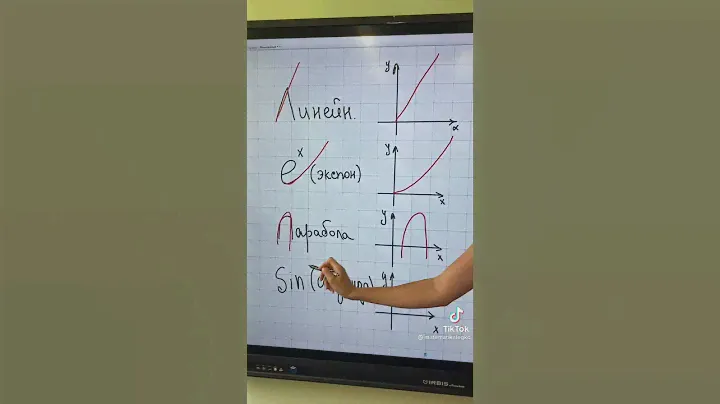 y
Линейн.
x
y
e^x (экспон)
x
y
Парабола
x
Sin
y
x
TikTok
IRBIS